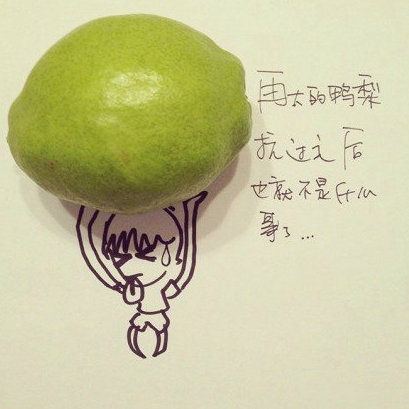 再大的鸭梨
抗过之后
也就不是什么
事了...